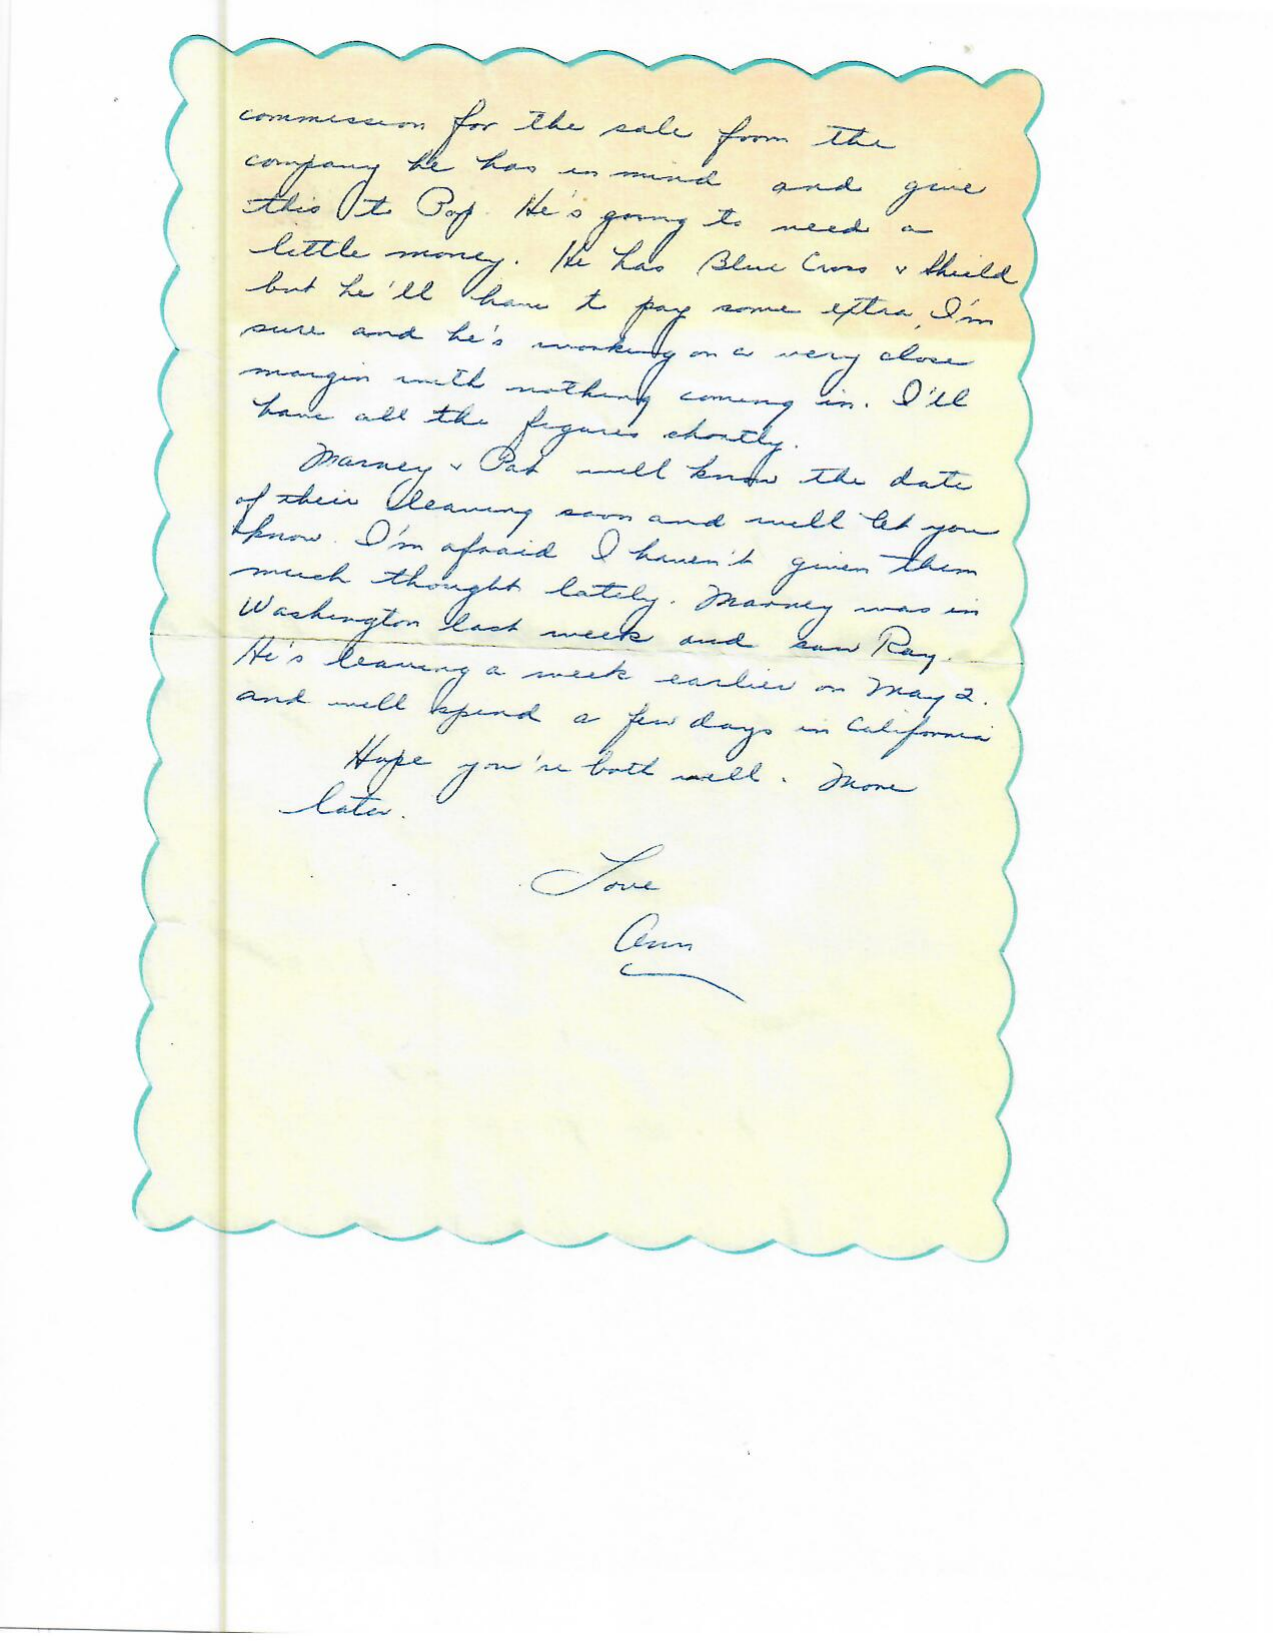 commission for the sale from the
company he has in mind and give
this to Pop. He's going to need a
little money. He has Blue Cross & Shield
but he'll have to pay some extra, I'm
sure and he's working on a very close
margin with nothing coming in. I'll
have all the figures shortly.
Marney & Pat will know the date
of their leaving soon and will let you
know. I'm afraid I haven't given them
much thought lately. Marney was in
Washington last week and saw Ray.
He's leaving a week earlier on May 2.
and will spend a few days in California
Hope you're both well. More
later.
Love
Ann